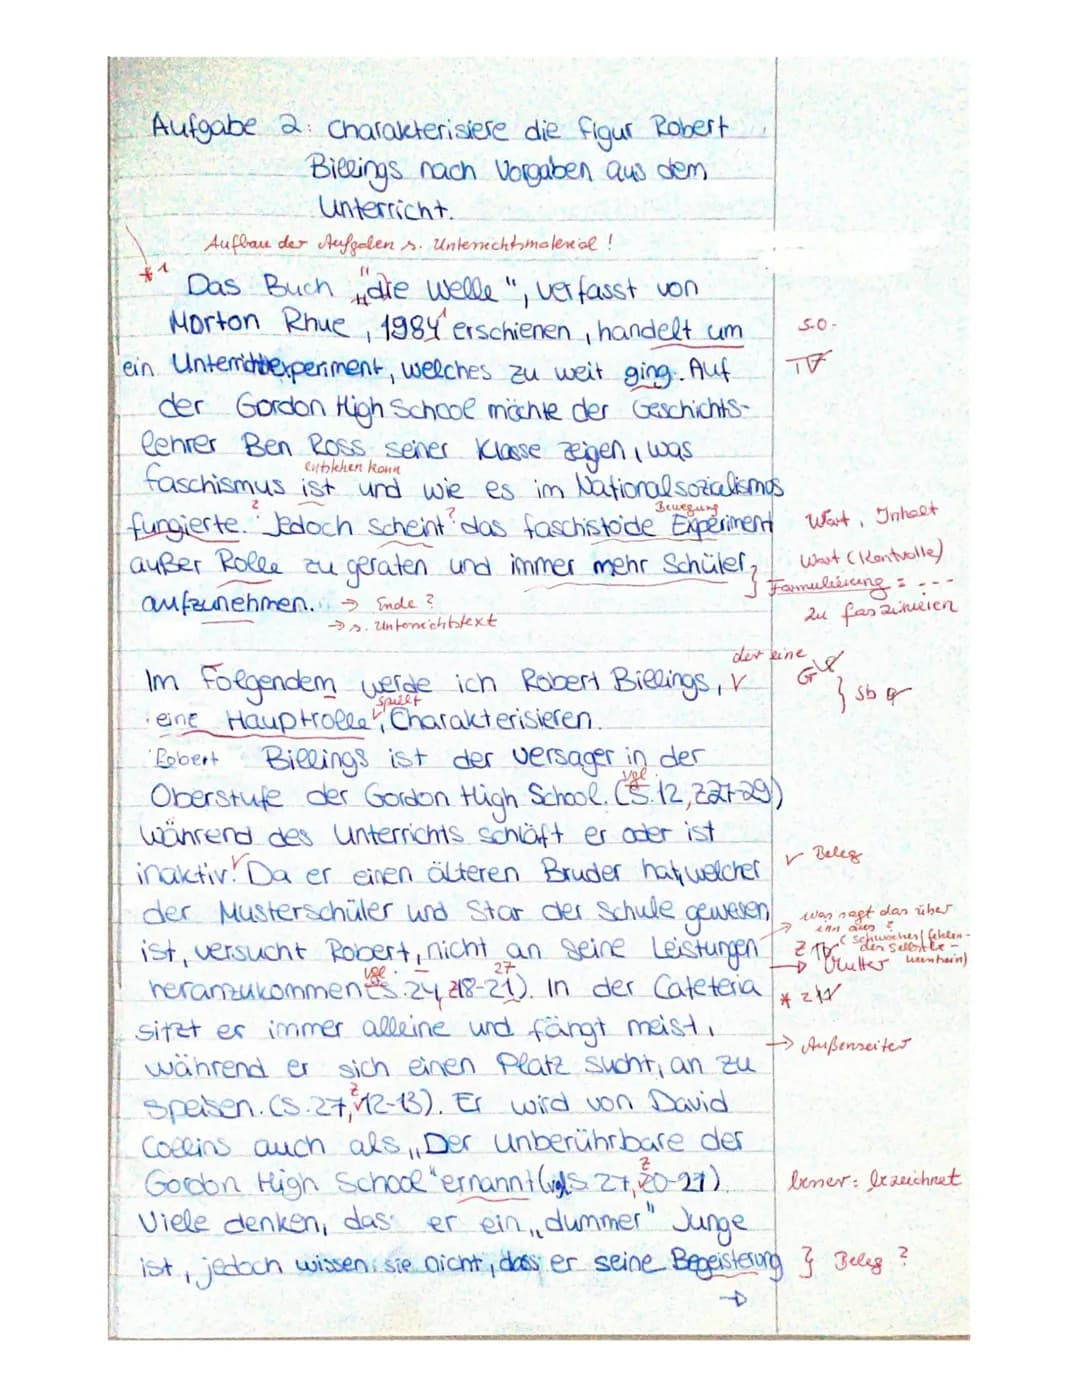 Aufgabe 2: Charakterisiere die Figur Robert
Billings nach Vorgaben aus dem
Unterricht.
Aufbau der Aufgaben s. Unterrichtsmaterial !
*1
Das Buch „die Welle", verfasst von
Morton Rhue, 1984 erschienen, handelt um
s.o.
ein Unterrichtexperiment, welches zu weit ging. Auf
TF
der Gordon High School möchte der Geschichts-
lehrer Ben Ross seiner Klasse zeigen, was
entstehen kann
faschismus ist und wie es im Nationalsozialismos
Bewegung
fungierte. Jedoch scheint das faschistoide Experiment
Wort, Inhalt
außer Rolle zu geraten und immer mehr Schüler
Wort (Kontrolle)
Formulierung = ---
aufzunehmen. → Ende ?
zu faszinieren
→ s. Unterrichtstext
der eine
Im Folgendem werde ich Robert Billings,
G
Sb
spielt
eine Hauptrolle, Charakterisieren.
Robert Billings ist der Versager in der
vgl.
Oberstufe der Gordon High School. (S.12, Z27-29)
während des Unterrichts schläft er oder ist
inaktiv. Da er einen älteren Bruder hat, welcher
√ Beleg
der Musterschüler und Star der Schule gewesen
→ was sagt das über
ihn aus ?
ist, versucht Robert, nicht an seine Leistungen
(schwaches/fehlen-
des Selbstbe-
wusstsein)
→ Mutter
vgl. 27
heranzukommen (S.24, Z18-21). In der Cafeteria
sitzt er immer alleine und fängt meist,
→ Außenseiter
während er sich einen Platz sucht, an zu
Z
speisen. (S.27, 12-13). Er wird von David
Collins auch als „Der unberührbare der
Z
Gordon High School" ernannt (vgl S. 27, 20-21).
besser: bezeichnet
Viele denken, das er ein „dummer" Junge
ist, jedoch wissen sie nicht, dass er seine Begeisterung
} Beleg ?
→